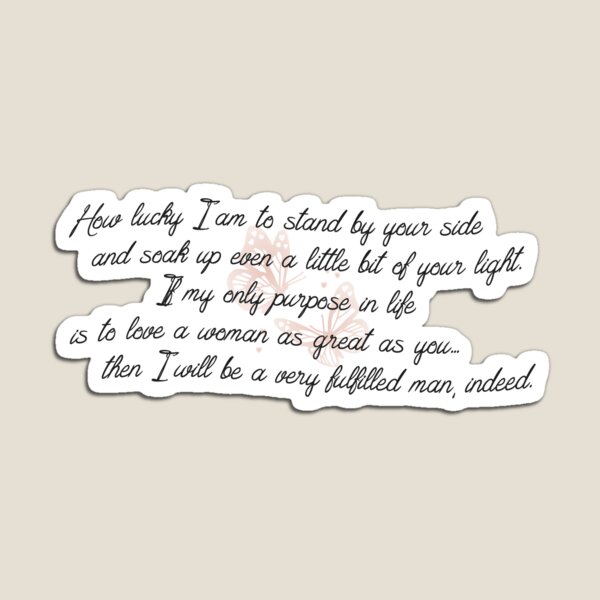 How lucky I am to stand by your side
and soak up even a little bit of your light.
If my only purpose in life
is to love a woman as great as you...
then I will be a very fulfilled man, indeed.